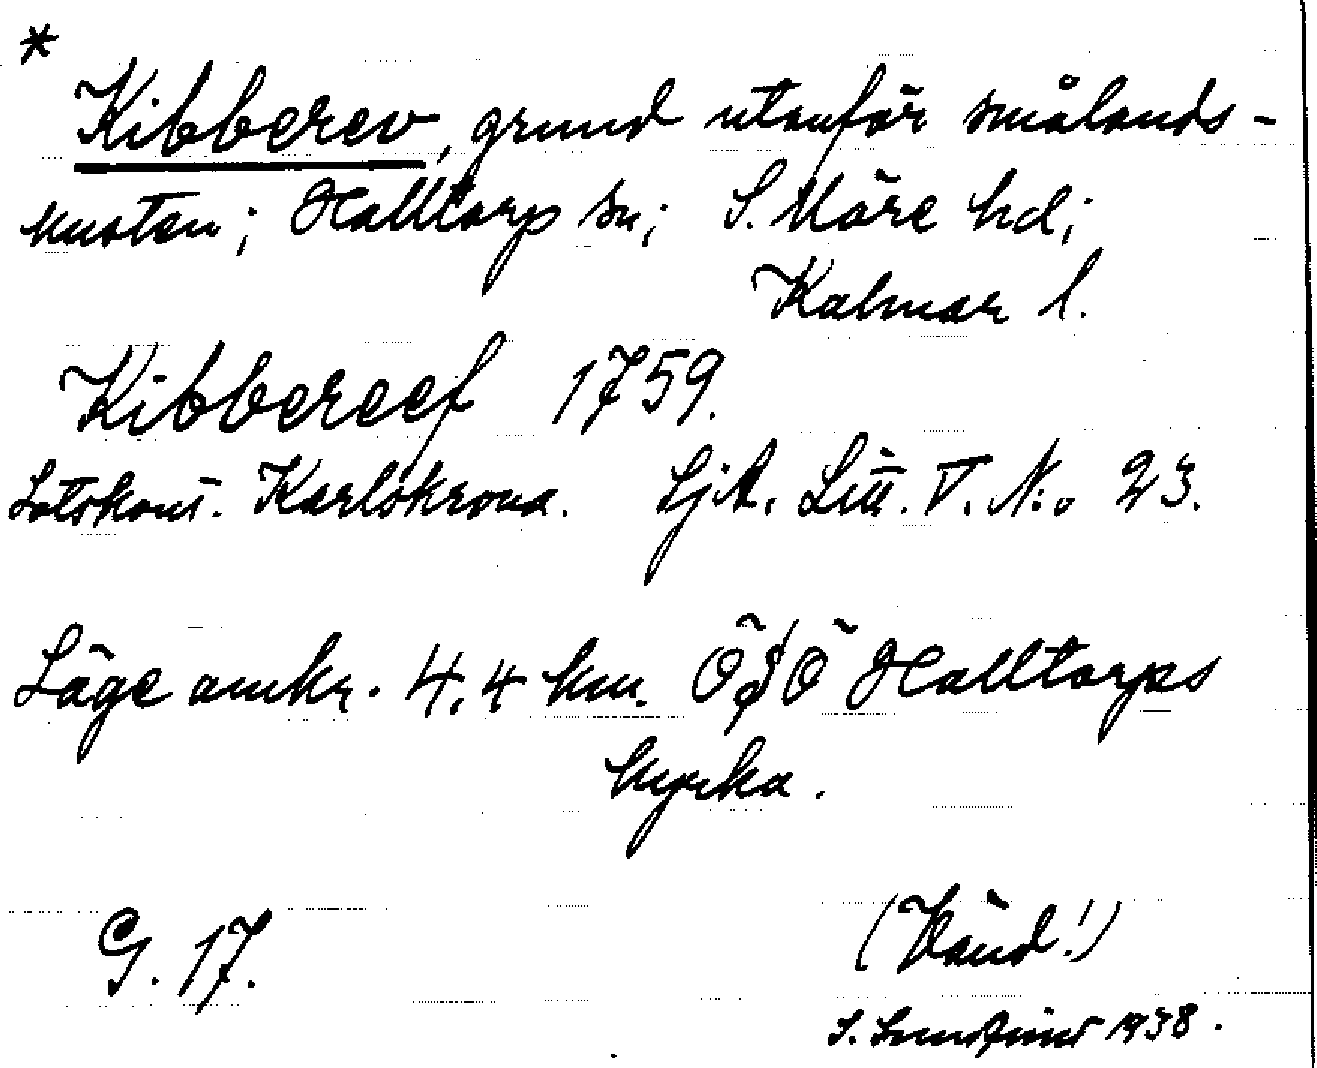 *
Kibberev, grund utanför smålands-
kusten; Halltorp sn; S. Möre hd;
Kalmar l.
Kibbereef 1759.
Lotskont. Karlskrona. SjA. Litt. V. N:o 23.
Läge omkr. 4,4 km. ÖSÖ Halltorps
kyrka.
G. 17.
(Vänd!)
S. 1938.